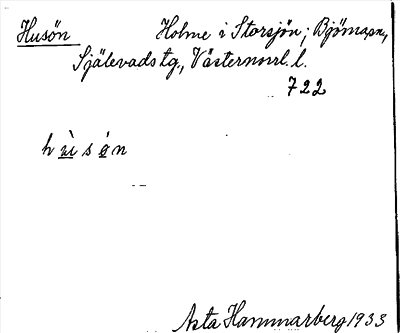 Husön Holme i Storsjön; Björna sn,
Själevads tg., Västernorrl. l.
722
h u̲ì s ó̲ n
Asta Hammarberg 1933